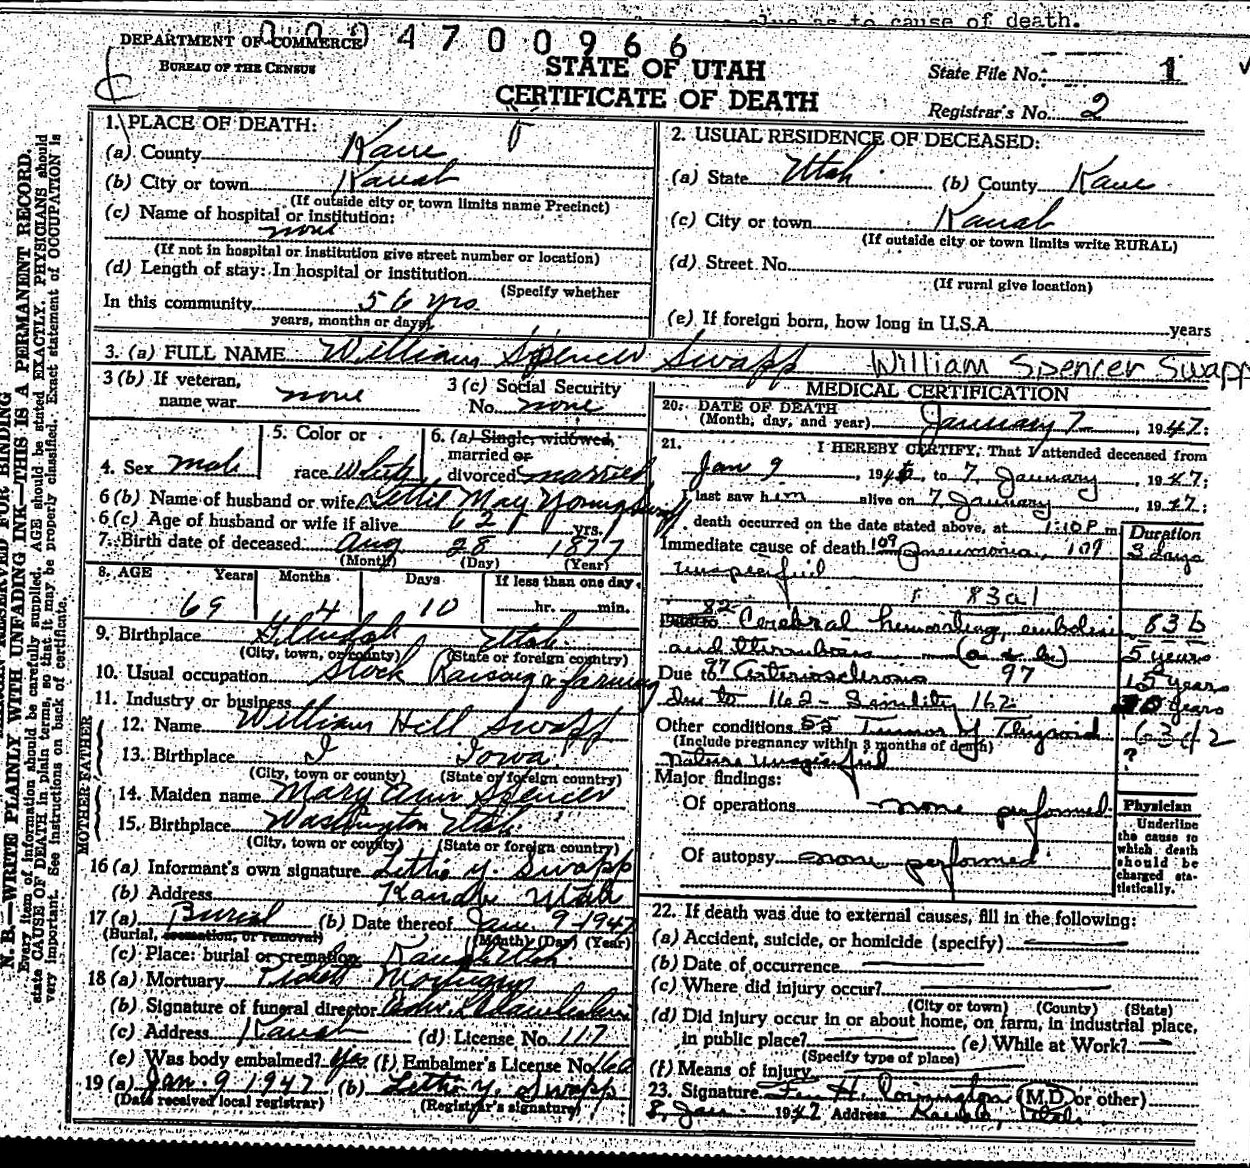 clue as to cause of death.
0 0 0 4 7 0 0 9 6 6
DEPARTMENT OF COMMERCE
BUREAU OF THE CENSUS
STATE OF UTAH
CERTIFICATE OF DEATH
State File No. 1
Registrar's No. 2
1. PLACE OF DEATH:
(a) County Kane
(b) City or town Kanab
(If outside city or town limits name Precinct)
(c) Name of hospital or institution:
none
(If not in hospital or institution give street number or location)
(d) Length of stay: In hospital or institution
(Specify whether
In this community 56 yrs.
years, months or days)
2. USUAL RESIDENCE OF DECEASED:
(a) State Utah (b) County Kane
(c) City or town Kanab
(If outside city or town limits write RURAL)
(d) Street No.
(If rural give location)
(e) If foreign born, how long in U.S.A. years
3. (a) FULL NAME William Spencer Swapp William Spencer Swapp
3 (b) If veteran, name war none
3 (c) Social Security No. none
4. Sex male
5. Color or race White
6. (a) Single, widowed, married or divorced married
6 (b) Name of husband or wife Lettie May Young Swapp
6 (c) Age of husband or wife if alive 62 yrs.
7. Birth date of deceased Aug 28 1877
(Month) (Day) (Year)
8. AGE Years Months Days If less than one day
69 4 10 hr. min.
9. Birthplace Glendale Utah
(City, town, or county) (State or foreign country)
10. Usual occupation Stock Raising & farming
11. Industry or business
FATHER
12. Name William Hill Swapp
13. Birthplace Iowa
(City, town or county) (State or foreign country)
MOTHER
14. Maiden name Mary Ann Spencer
15. Birthplace Washington Utah
(City, town or county) (State or foreign country)
16 (a) Informant's own signature Lettie Y. Swapp
(b) Address Kanab Utah
17 (a) Burial (b) Date thereof Jan 9 1947
(Burial, cremation, or removal) (Month) (Day) (Year)
(c) Place: burial or cremation Kanab Utah
18 (a) Mortuary Mortuary
(b) Signature of funeral director
(c) Address Kanab (d) License No. 117
(e) Was body embalmed? Yes (f) Embalmer's License No. 160
19 (a) Jan. 9 1947 (b) Lettie Y. Swapp
(Date received local registrar) (Registrar's signature)
MEDICAL CERTIFICATION
20. DATE OF DEATH
(Month, day, and year) January 7, 1947;
21. I HEREBY CERTIFY, That I attended deceased from
Jan 9, 194 , to 7, January, 1947;
I last saw him alive on 7, January, 1947;
death occurred on the date stated above, at 1:10 P. m
Duration
Immediate cause of death 109 Pneumonia, 109 3 days
Unspecified
83a1
82 Cerebral hemorrhage, embolism 83b
and thrombosis (a & b) 5 years
Due to 97 Arteriosclerosis 97 15 years
Due to 162 - Senility 162 years
Other conditions 55 Tumor of Thyroid
(Include pregnancy within 3 months of death)
nature unspecified ?
Major findings:
Of operations none performed
Of autopsy none performed
Physician
Underline the cause to which death should be charged statistically.
22. If death was due to external causes, fill in the following:
(a) Accident, suicide, or homicide (specify)
(b) Date of occurrence
(c) Where did injury occur?
(City or town) (County) (State)
(d) Did injury occur in or about home, on farm, in industrial place,
in public place? (e) While at Work?
(Specify type of place)
(f) Means of injury
23. Signature (M.D. or other)
8, Jan 1947 Address Kanab, Utah
N. B.—WRITE PLAINLY WITH UNFADING INK—THIS IS A PERMANENT RECORD.
Every item of information should be carefully supplied. AGE should be stated EXACTLY. PHYSICIANS should
state CAUSE OF DEATH in plain terms, so that it may be properly classified. Exact statement of OCCUPATION is
very important. See instructions on back of certificate.